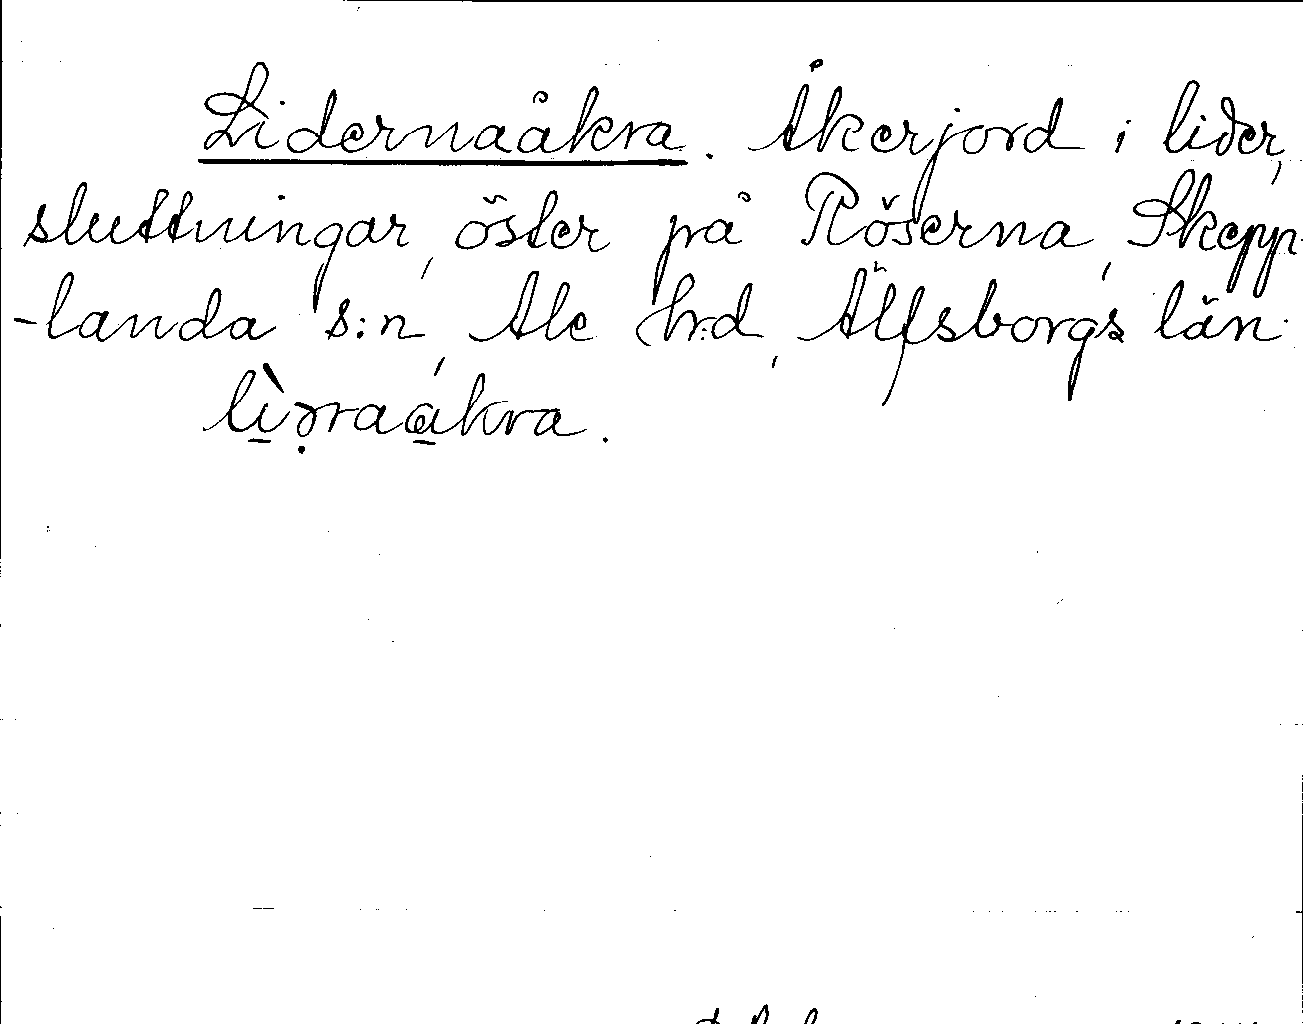 Lidernaåkra. Åkerjord i lider,
sluttningar, öster på Röserna, Skepp-
-landa s:n, Ale h:d, Älfsborgs län.